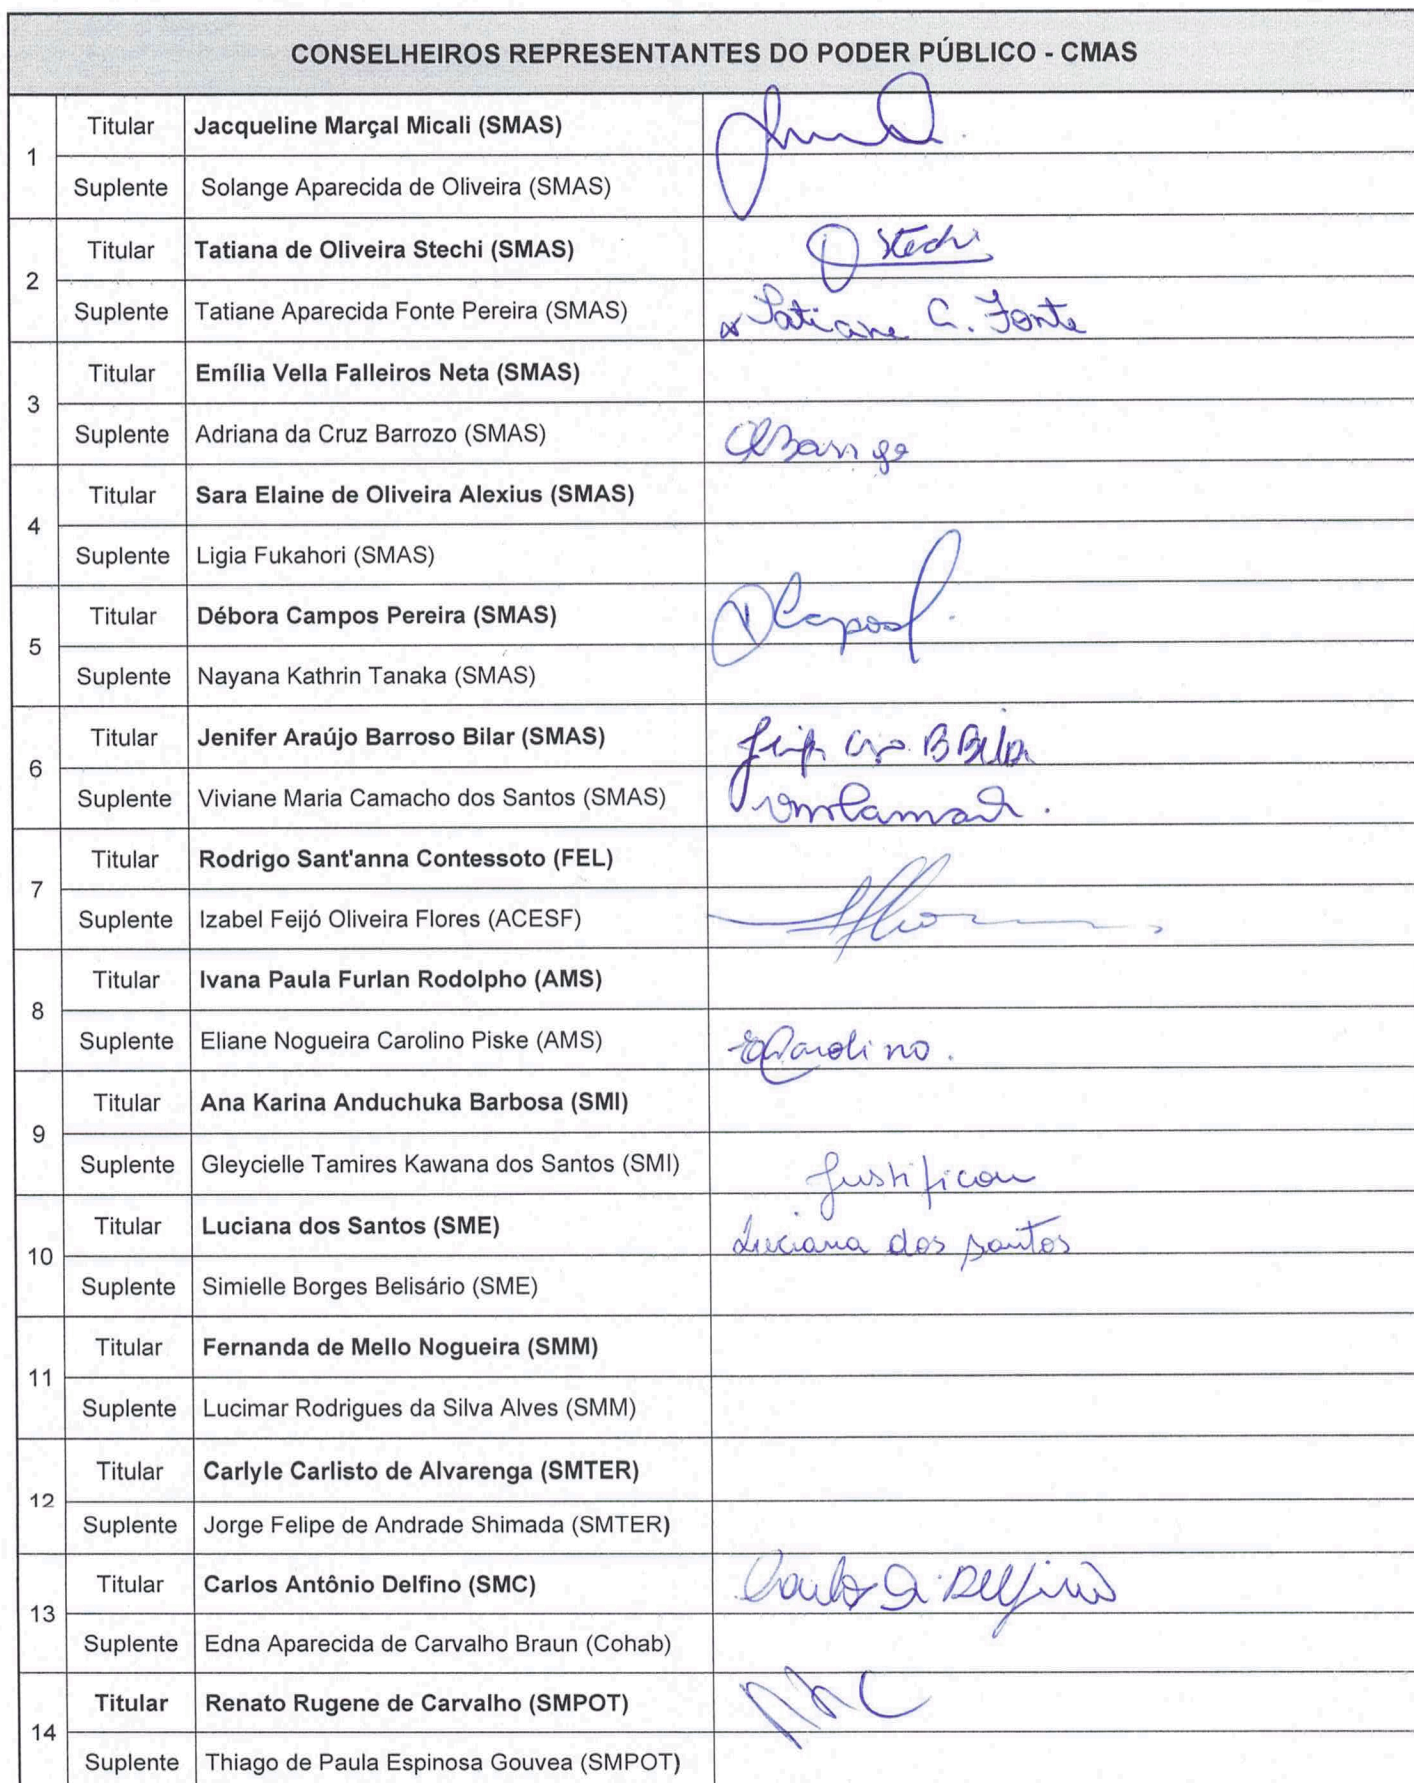 CONSELHEIROS REPRESENTANTES DO PODER PÚBLICO - CMAS
1
Titular Jacqueline Marçal Micali (SMAS)
Suplente Solange Aparecida de Oliveira (SMAS)
2
Titular Tatiana de Oliveira Stechi (SMAS) Stechi
Suplente Tatiane Aparecida Fonte Pereira (SMAS) Tatiane A. Fonte
3
Titular Emília Vella Falleiros Neta (SMAS)
Suplente Adriana da Cruz Barrozo (SMAS)
4
Titular Sara Elaine de Oliveira Alexius (SMAS)
Suplente Ligia Fukahori (SMAS)
5
Titular Débora Campos Pereira (SMAS)
Suplente Nayana Kathrin Tanaka (SMAS)
6
Titular Jenifer Araújo Barroso Bilar (SMAS)
Suplente Viviane Maria Camacho dos Santos (SMAS)
7
Titular Rodrigo Sant'anna Contessoto (FEL)
Suplente Izabel Feijó Oliveira Flores (ACESF)
8
Titular Ivana Paula Furlan Rodolpho (AMS)
Suplente Eliane Nogueira Carolino Piske (AMS) ECarolino.
9
Titular Ana Karina Anduchuka Barbosa (SMI)
Suplente Gleycielle Tamires Kawana dos Santos (SMI) Justificou
10
Titular Luciana dos Santos (SME) Luciana dos Santos
Suplente Simielle Borges Belisário (SME)
11
Titular Fernanda de Mello Nogueira (SMM)
Suplente Lucimar Rodrigues da Silva Alves (SMM)
12
Titular Carlyle Carlisto de Alvarenga (SMTER)
Suplente Jorge Felipe de Andrade Shimada (SMTER)
13
Titular Carlos Antônio Delfino (SMC) Carlos A. Delfino
Suplente Edna Aparecida de Carvalho Braun (Cohab)
14
Titular Renato Rugene de Carvalho (SMPOT)
Suplente Thiago de Paula Espinosa Gouvea (SMPOT)